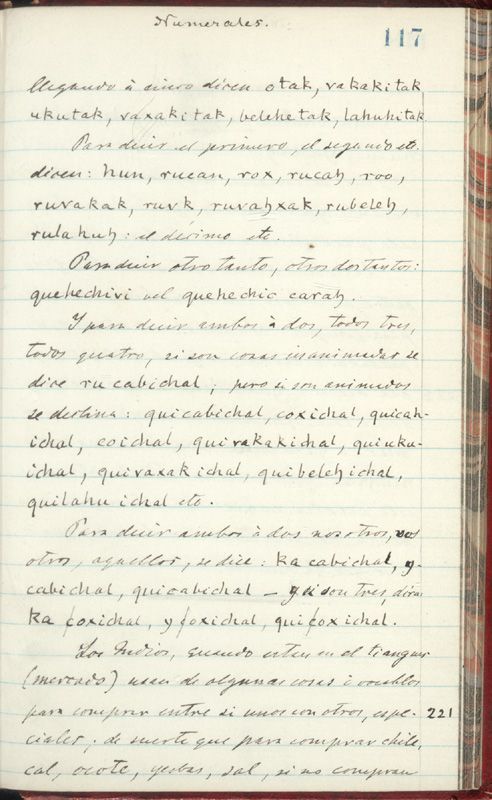 Numerales.
117
llegando à cinco dicen otak, vakakitak
ukutak, vaxakitak, belehetak, lahuhitak
Para decir el primero, el segundo etc.
dicen: hun, rucan, rox, rucaḩ, roo,
ruvakak, ruvk, ruvaḩxak, rubeleḩ,
rulahuḩ: el décimo etc.
Para decir otro tanto, otros dos tantos:
quehechivi vel quehechic caraḩ.
Y para decir ambos à dos, todos tres,
todos quatro, si son cosas inanimadas se
dice ru cabichal; pero si son animados
se declina: quicabichal, coxichal, quicah-
ichal, coichal, quivakakichal, quiuku-
ichal, quivaxak ichal, quibeleḩichal,
quilahu ichal etc.
Para decir ambos à dos nosotros, vos
otros, aquellos, se dice: ka cabichal, y-
cabichal, quicabichal – y si son tres, dicen
ka ꞓoxichal, y ꞓoxichal, quiꞓox ichal.
Los Indios, quando esten en el tianguis
(mercado) usan de algunas cosas i vocablos
para comprar entre si unos con otros, espe- 221
ciales; de suerte que para comprar chile,
cal, ocote, yerbas, sal, si no compran